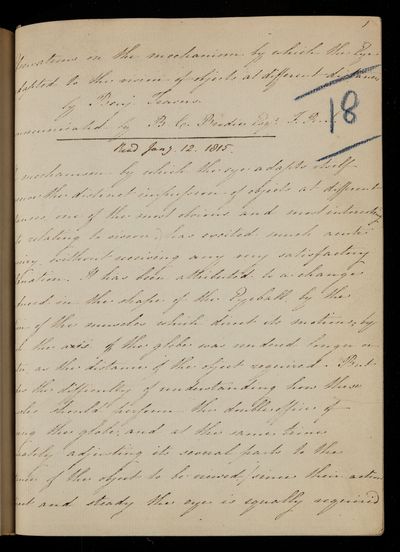 1
in the mechanism by which the Eye
adapted to the vision of objects at different distances
by Benj. Travers.
communicated by B. C. Brodie Esqr. F. R. S.
18
Read Jany. 12. 1815.
mechanism by which the eye adapts itself
the distinct impression of objects at different
one of the most obvious and most interesting
relating to vision, has excited much acute
without receiving any very satisfactory
It has been attributed to a change
in the shape of the Eyeball by the
of the muscles which direct its motions; by
the axis of the globe was rendered longer or
as the distance of the object required. But
the difficulty of understanding how these
should perform the double office of
the globe, and at the same time
adjusting its several parts to the
of the object to be viewed, since their action
and steady the eye is equally required